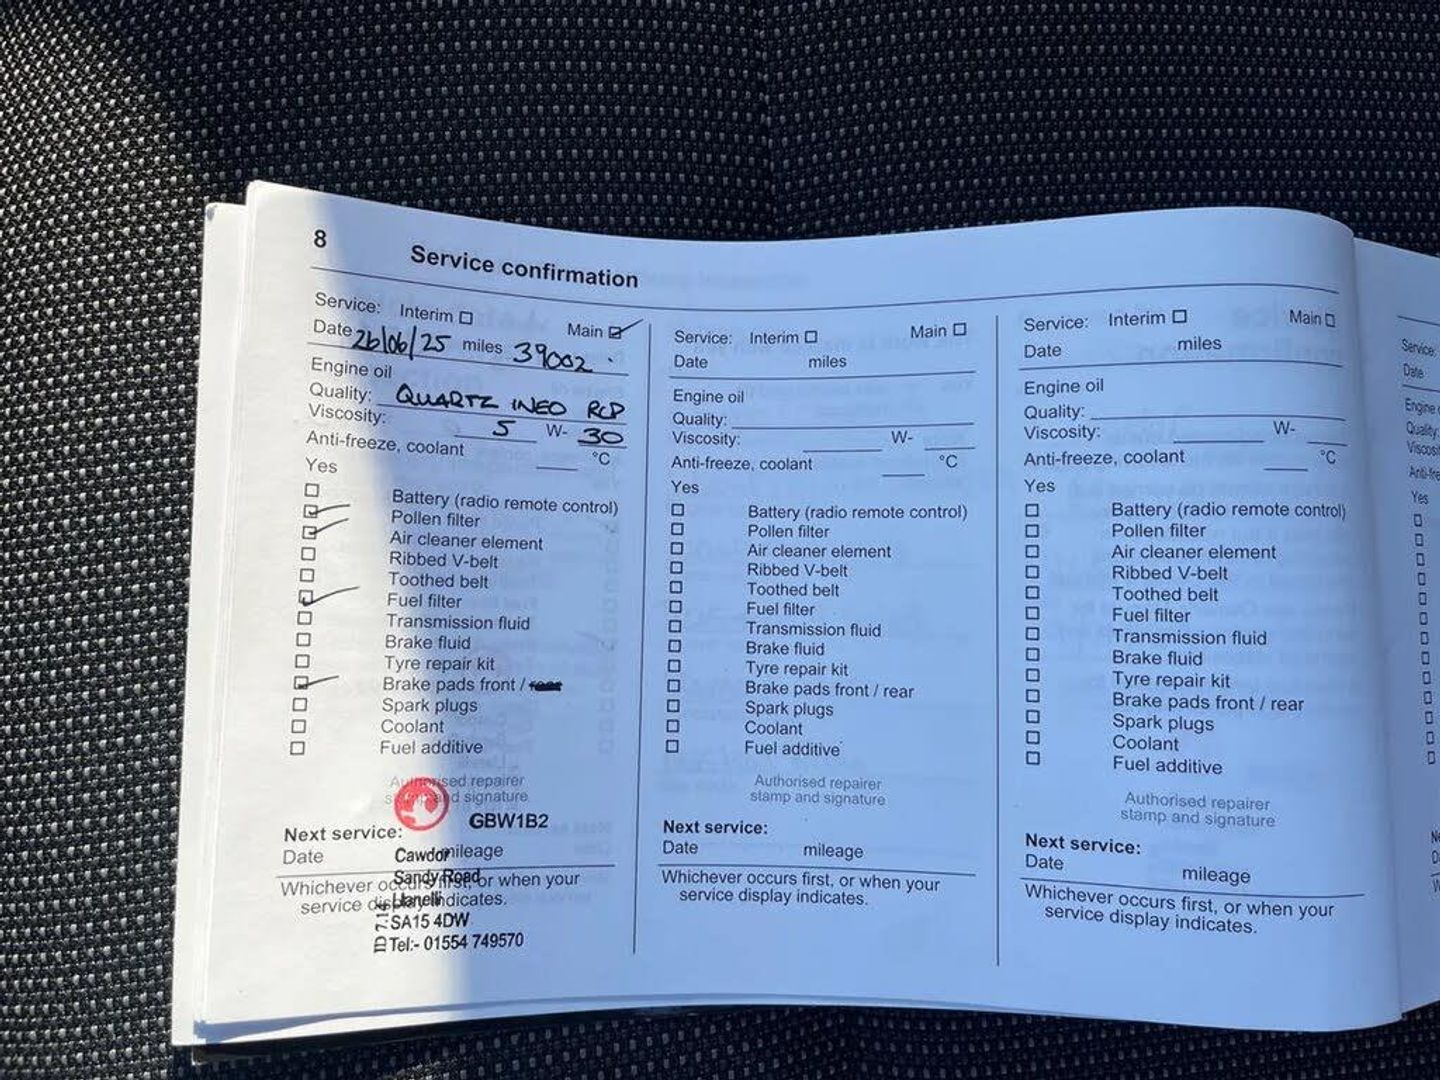 8
Service confirmation
Service: Interim ☐ Main ☑
Date 26/06/25 miles 39002
Engine oil
Quality: QUARTZ INEO RCP
Viscosity: 5 W- 30
Anti-freeze, coolant °C
Yes
Battery (radio remote control)
Pollen filter
Air cleaner element
Ribbed V-belt
Toothed belt
Fuel filter
Transmission fluid
Brake fluid
Tyre repair kit
Brake pads front /
Spark plugs
Coolant
Fuel additive
Authorised repairer
stamp and signature
GBW1B2
Next service:
Date mileage
Whichever occurs first, or when your
service display indicates.
Cawdor
Sandy Road
Llanelli
SA15 4DW
Tel:- 01554 749570
Service: Interim ☐ Main ☐
Date miles
Engine oil
Quality:
Viscosity: W-
Anti-freeze, coolant °C
Yes
Battery (radio remote control)
Pollen filter
Air cleaner element
Ribbed V-belt
Toothed belt
Fuel filter
Transmission fluid
Brake fluid
Tyre repair kit
Brake pads front / rear
Spark plugs
Coolant
Fuel additive
Authorised repairer
stamp and signature
Next service:
Date mileage
Whichever occurs first, or when your
service display indicates.
Service: Interim ☐ Main ☐
Date miles
Engine oil
Quality:
Viscosity: W-
Anti-freeze, coolant °C
Yes
Battery (radio remote control)
Pollen filter
Air cleaner element
Ribbed V-belt
Toothed belt
Fuel filter
Transmission fluid
Brake fluid
Tyre repair kit
Brake pads front / rear
Spark plugs
Coolant
Fuel additive
Authorised repairer
stamp and signature
Next service:
Date mileage
Whichever occurs first, or when your
service display indicates.
Service:
Date
Engine
Quality:
Yes